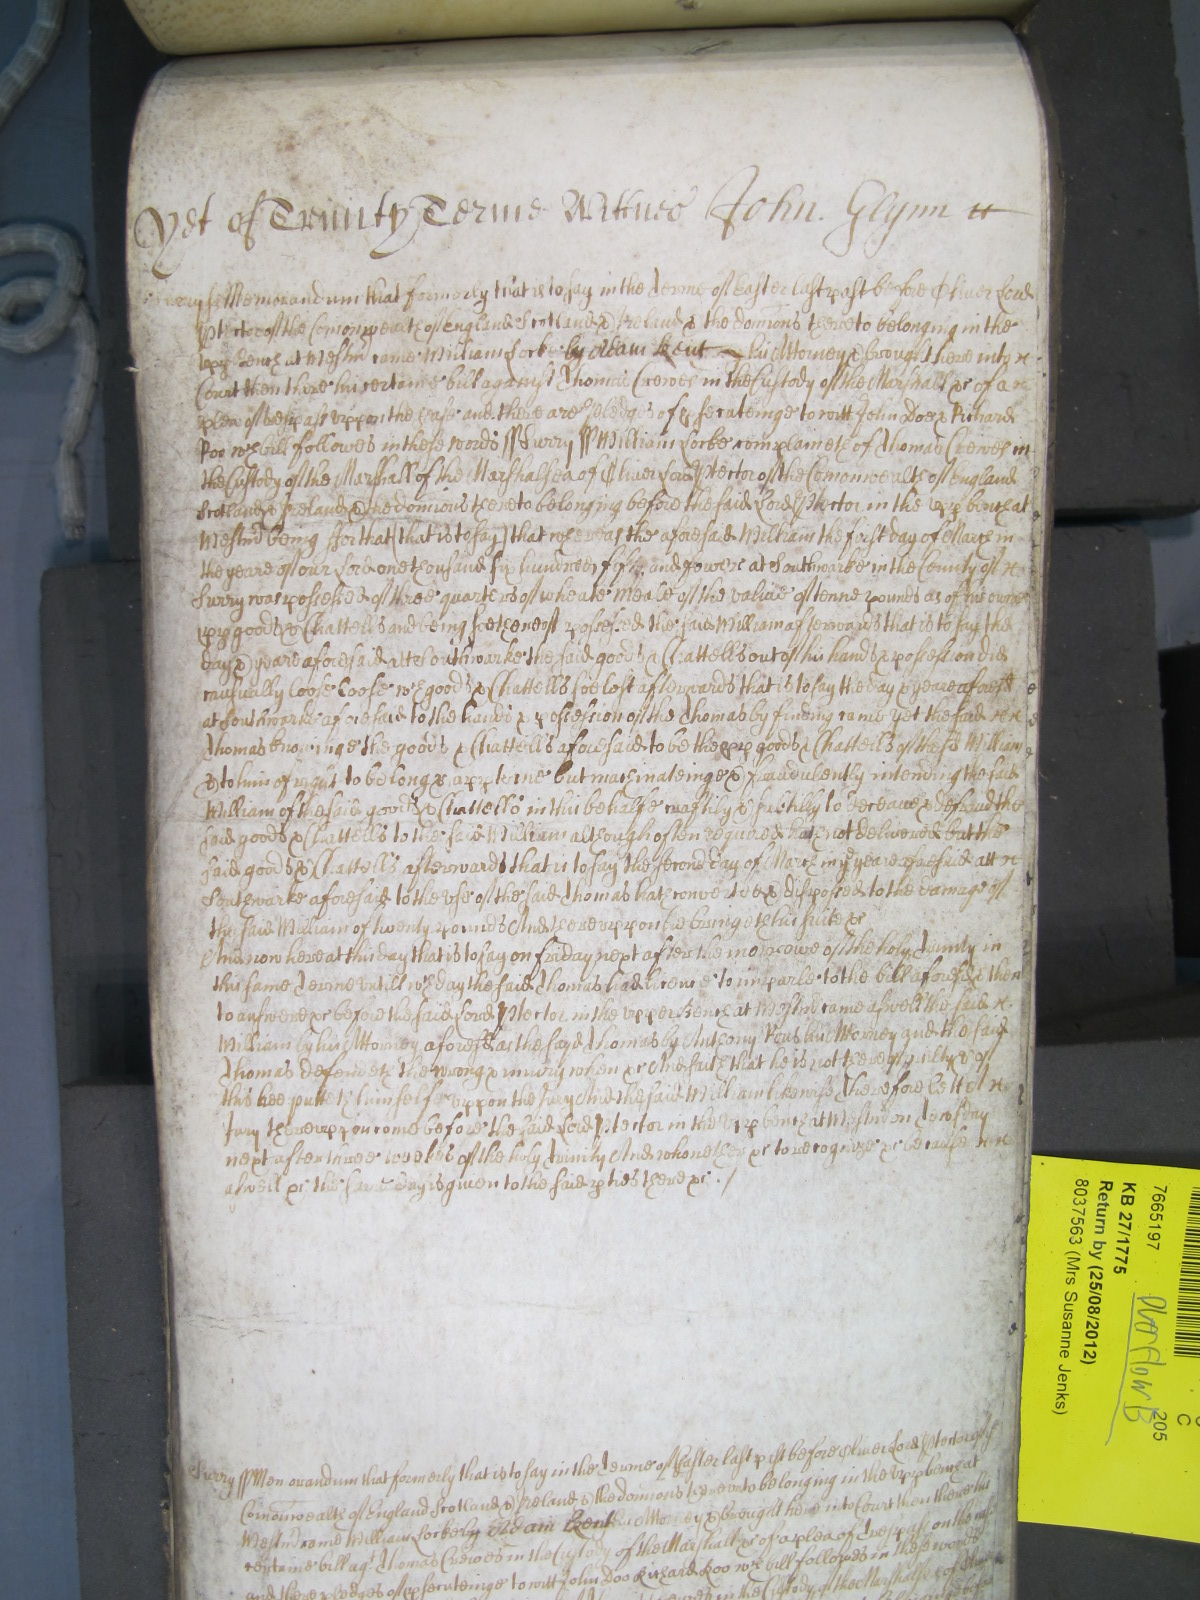 Yet of Trinity Terme Witnes John Glynn
Surry ss Memorandum that formerly that is to say in the Terme of Easter last past before Oliver Lord
Ptector of the Comonwealth of England Scotland & Ireland & the dominions thereto belonging in the
upp bench at Westm came William Locke by Adam Kent his Attorney & brought here into
Court then there his certaine bill against Thomas Crewes in the Custody of the Marshall &c of a
plea of trespasse uppon the case and there are pledges of psecuteinge to witt John Doe & Richard
Roo wch bill followes in these words ss Surry ss William Locke complaineth of Thomas Crewes in
the Custody of the Marshall of the Marshalsea of Oliver Lord Ptector of the Comonwealth of England
Scotland & Ireland & the dominions thereto belonging before the said Lord Ptector in the upp bench at
Westm being for that (that is to say) that whereas the aforesaid William the first day of March in
the yeare of our Lord one thousand six hundred fifty and fower at Southwarke in the County of
Surry was possessed of three quarters of wheate meale of the value of tenne pounds as of his owne
pp goods & Chattells and being soe thereof possessed the said William afterwards that is to say the
day & yeare aforesaid att Southwarke the said goods & Chattells out of his hands & possession did
casually loose loose wch goods & Chattells soe lost afterwards that is to say the day & yeare aforesd
at Southwarke aforesaid to the hands & possession of the Thomas by finding came yet the said
Thomas knowinge the goods & Chattells aforesaid to be the pp goods & Chattells of the sd William
& to him of right to belong & apptaine but machinateinge & fraudulently intending the said
William of the said goods & Chattells in this behalfe craftily & subtilly to deceave & defraud the
said goods & Chattells to the said William although often required hath not delivered but the
said goods & Chattells afterwards that is to say the second day of March in ye yeare aforesaid att
Southwarke aforesaid to the use of the said Thomas hath converted & disposed to the damage of
the said William of twenty pounds And thereuppon he bringeth his suite &c
And now here at this day that is to say on friday next after the morrowe of the holy Trinity in
this same Terme untill wch day the said Thomas had licence to imparle to the bill aforesd & then
to answere &c before the said Lord Ptector in the upper bench at Westm came aswell the said
William by his Attorney aforesd as the sayd Thomas by Anthony his Attorney and the said
Thomas defendeth the wrong & iniury when &c And saith that he is not thereof guilty & of
this hee putteth himselfe uppon the Cuntry And the said William likewise Therefore let a
Jury thereuppon come before the said Lord Ptector in the upp bench at Westm on
next after three weekes of the holy Trinity And who neither &c to recognize &c because
aswell &c the same day is given to the said pties there &c ./
Surry ss Memorandum that formerly that is to say in the Terme of Easter last past before Oliver Lord Ptector of ye
Comonwealth of England Scotland & Ireland & the dominions thereunto belonging in the upp bench at
Westm came William Locke by Adam Kent his Attorney & brought here into Court then there his
certaine bill agt Thomas Crewes in the Custody of the Marshall &c of a plea of Trespass on the case
and there pledges of psecuteinge to witt John Doo & Richard Roo wch bill followes in these words
in the Custody of the Marshalsea of
7665197
KB 27/1775
Return by (25/08/2012)
8037563 (Mrs Susanne Jenks)
Overflow B
205
C